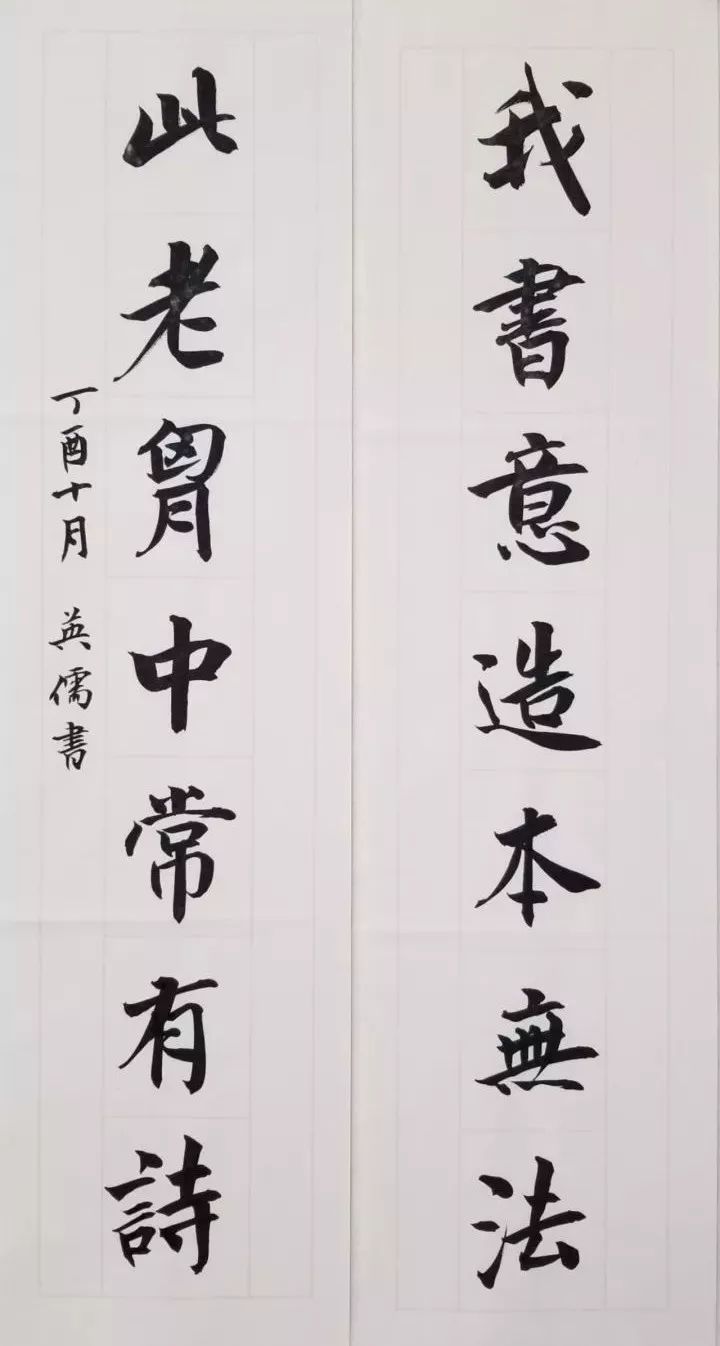 我書意造本無法
此老胷中常有詩
丁酉十月 英儒書